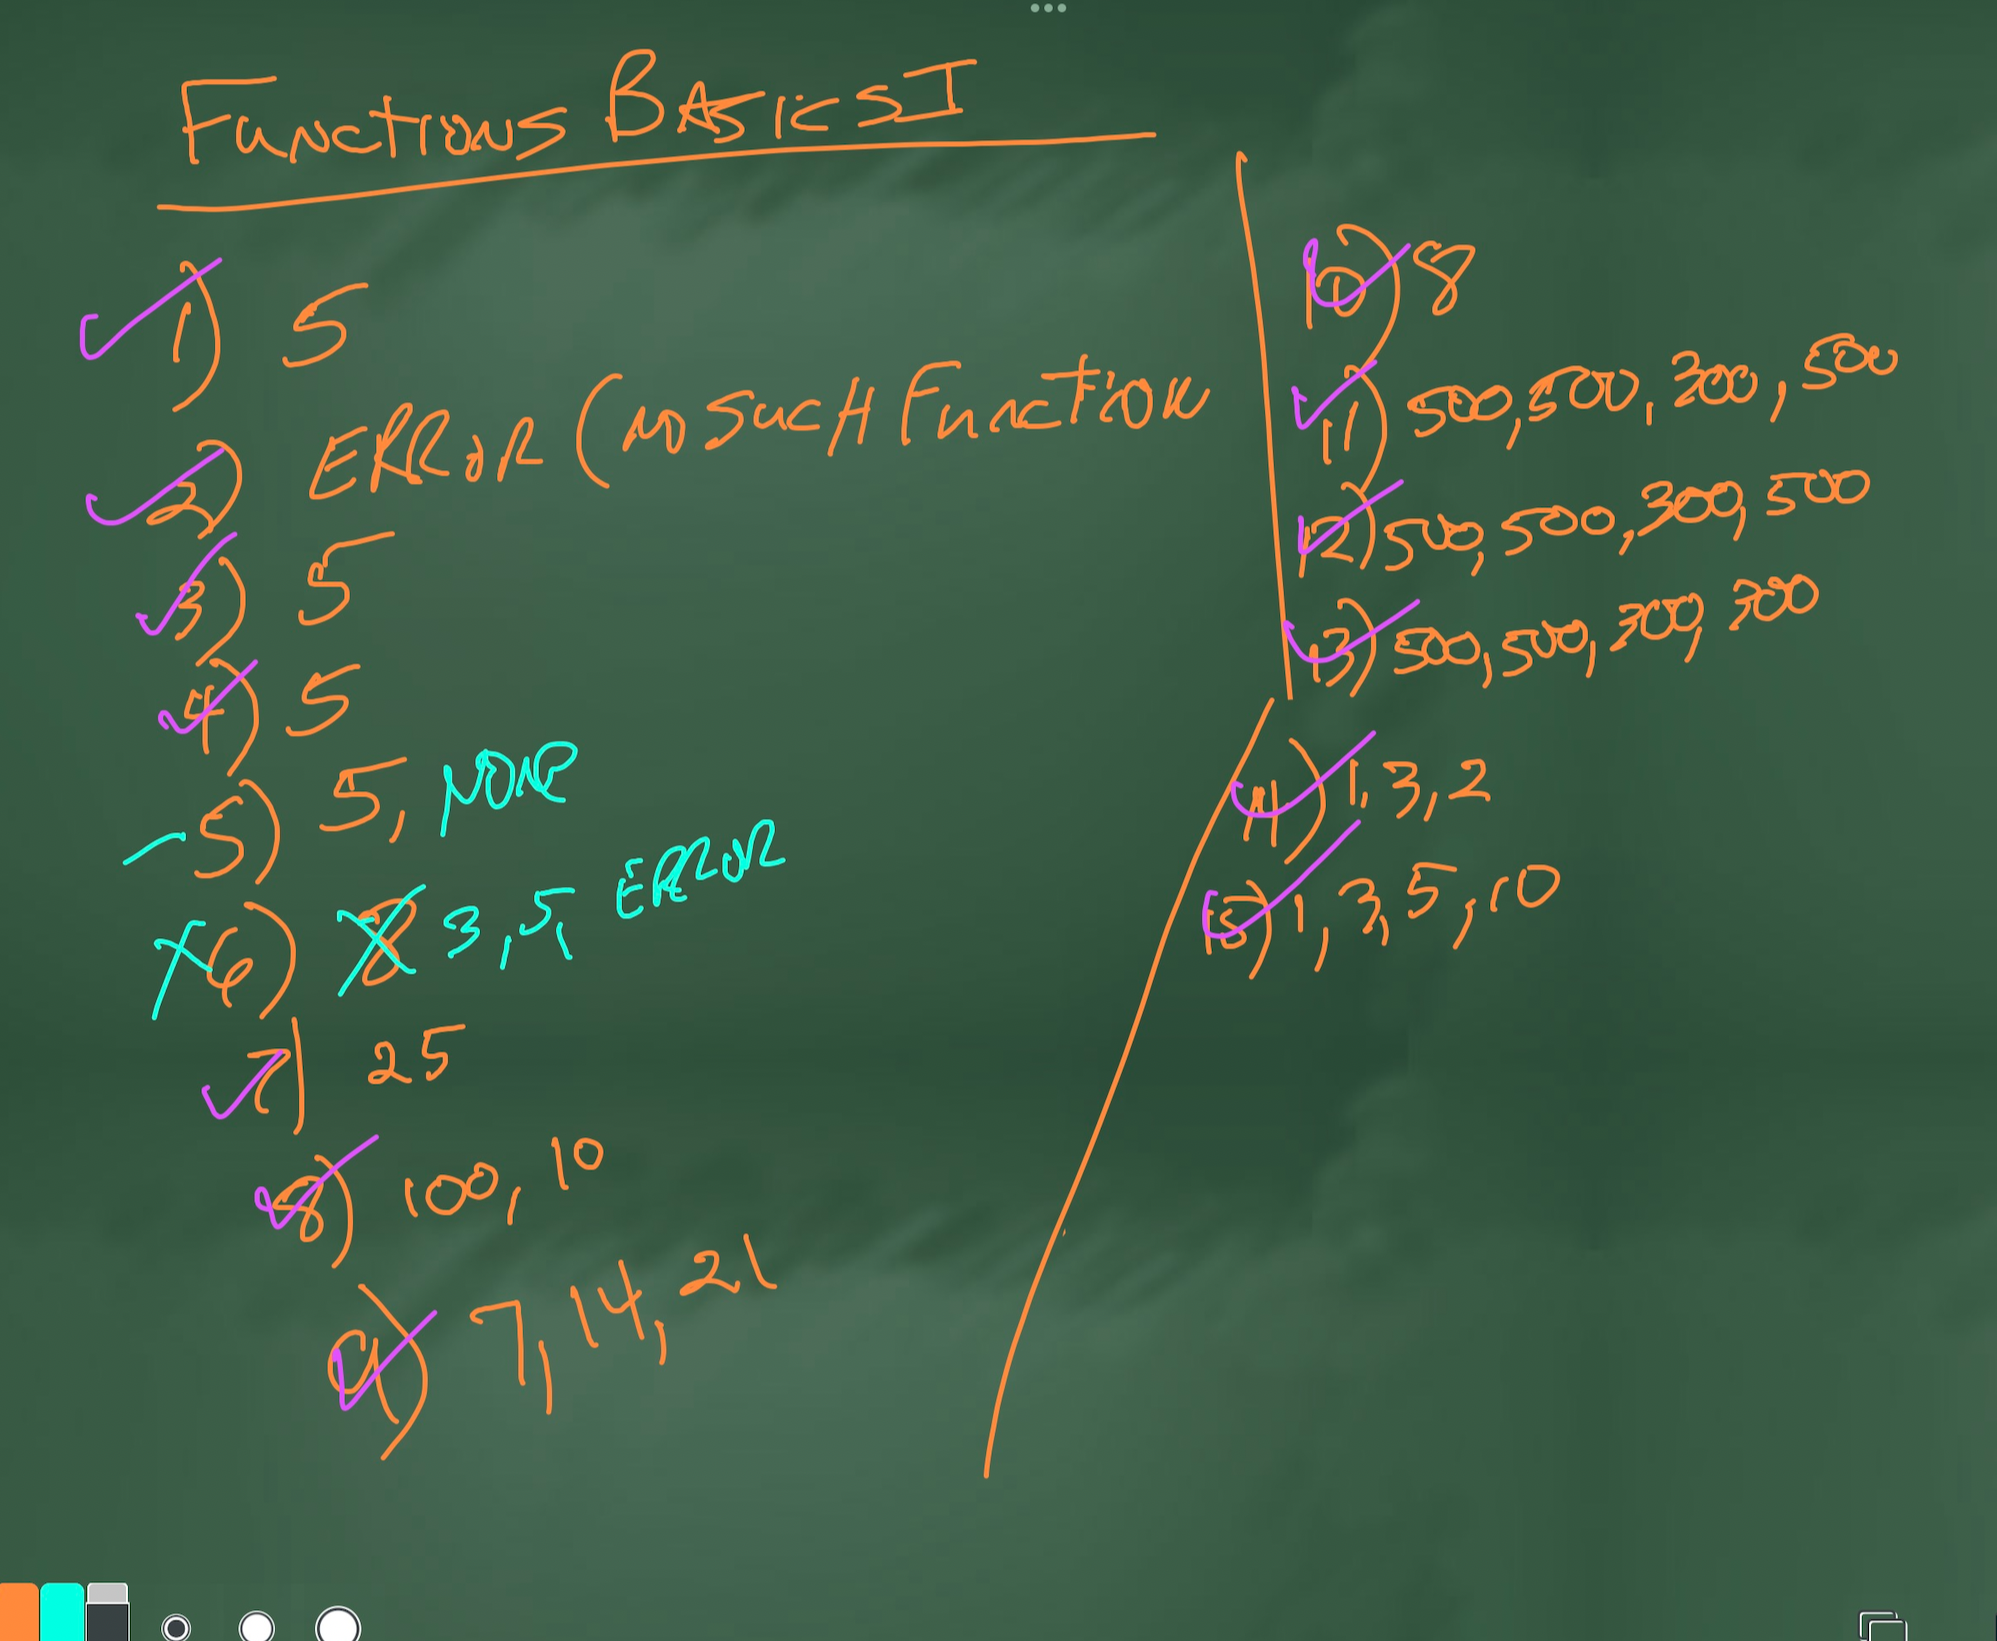 Functions Basics I
1) 5
2) ERROR (no such function
3) 5
4) 5
5) 5, None
6) 8 3, 5, ERROR
7) 25
8) 100, 10
9) 7, 14, 21
10) 8
11) 500, 500, 300, 500
12) 500, 500, 300, 500
13) 500, 500, 300, 300
14) 1, 3, 2
15) 1, 3, 5, 10